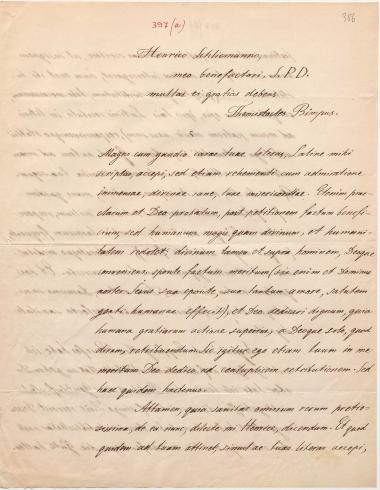 397 (a)
386
Henrico Schliemanno,
meo benefactori, S. P. D.
multas ei gratias debens
Themistocles Bimpus.
Magno cum gaudio caras tuas literas, Latine mihi
scriptas, accepi, sed etiam vehementi cum admiratione
immensae, divinae sane, tuae misericordiae. Etenim prae-
clarum et Deo probatum, post petitionem factum benefi-
cium, sed humanum magis quam divinum, et humani-
tatem redolet; divinum tamen et supra hominem, Deoque
conveniens, sponte factum meritum (sic enim et Dominus
noster Jesus sua sponte, suo tantum amore, salutem
generi humanae effecit), et Deo dedicari dignum, quia
humana gratiarum actione superius, a Deoque solo, quod
diram, retribuendum. Sic igitur ego etiam tuum in me
meritum Deo dedico ad centuplicem retributionem. Sed
haec quidem hactenus.
Attamen, quia sanitas omnium rerum pretio-
sissima, de ea nunc, dilecte mi Henrice, dicendum. Et quod
quidem ad tuam attinet, simul ac tuas literas accepi,